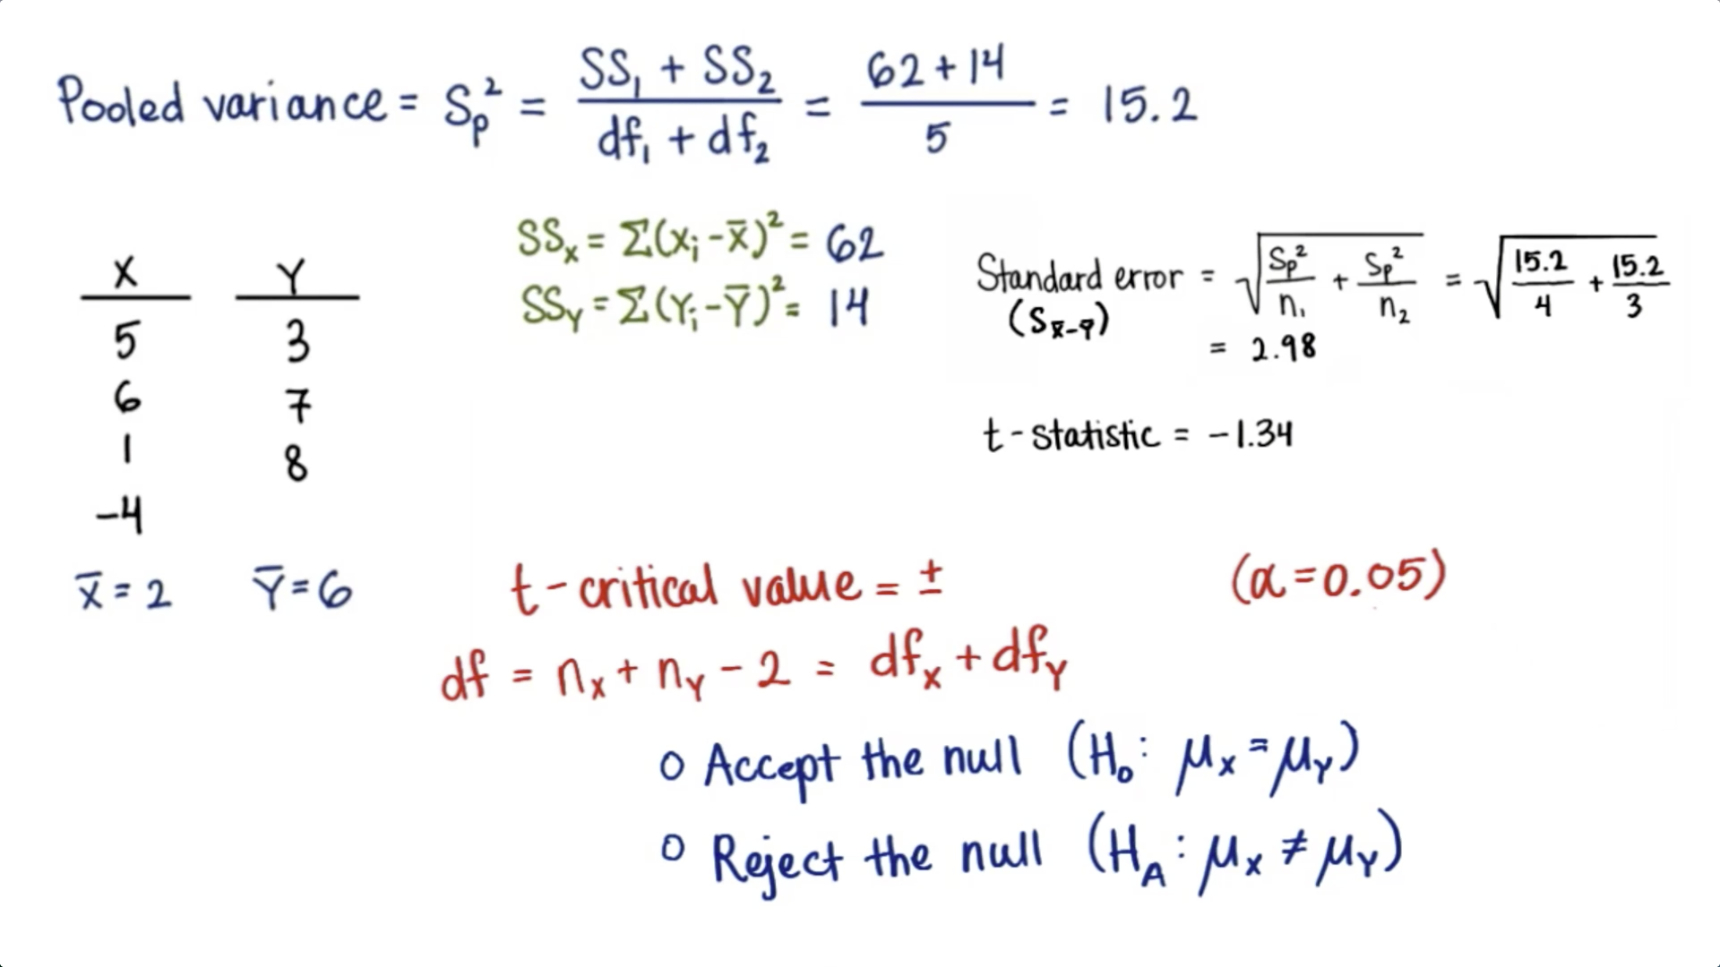 Pooled variance = Sp² = (SS₁ + SS₂)/(df₁ + df₂) = (62 + 14)/5 = 15.2
X Y
5 3
6 7
1 8
-4
X̄ = 2 Ȳ = 6
SSₓ = Σ(xᵢ - x̄)² = 62
SSY = Σ(Yᵢ - Ȳ)² = 14
Standard error = √(Sp²/n₁ + Sp²/n₂) = √(15.2/4 + 15.2/3)
(Sx̄-ȳ)
= 2.98
t-statistic = -1.34
t-critical value = ± (α = 0.05)
df = nX + nY - 2 = dfX + dfY
o Accept the null (H₀: μX = μY)
o Reject the null (HA: μX ≠ μY)